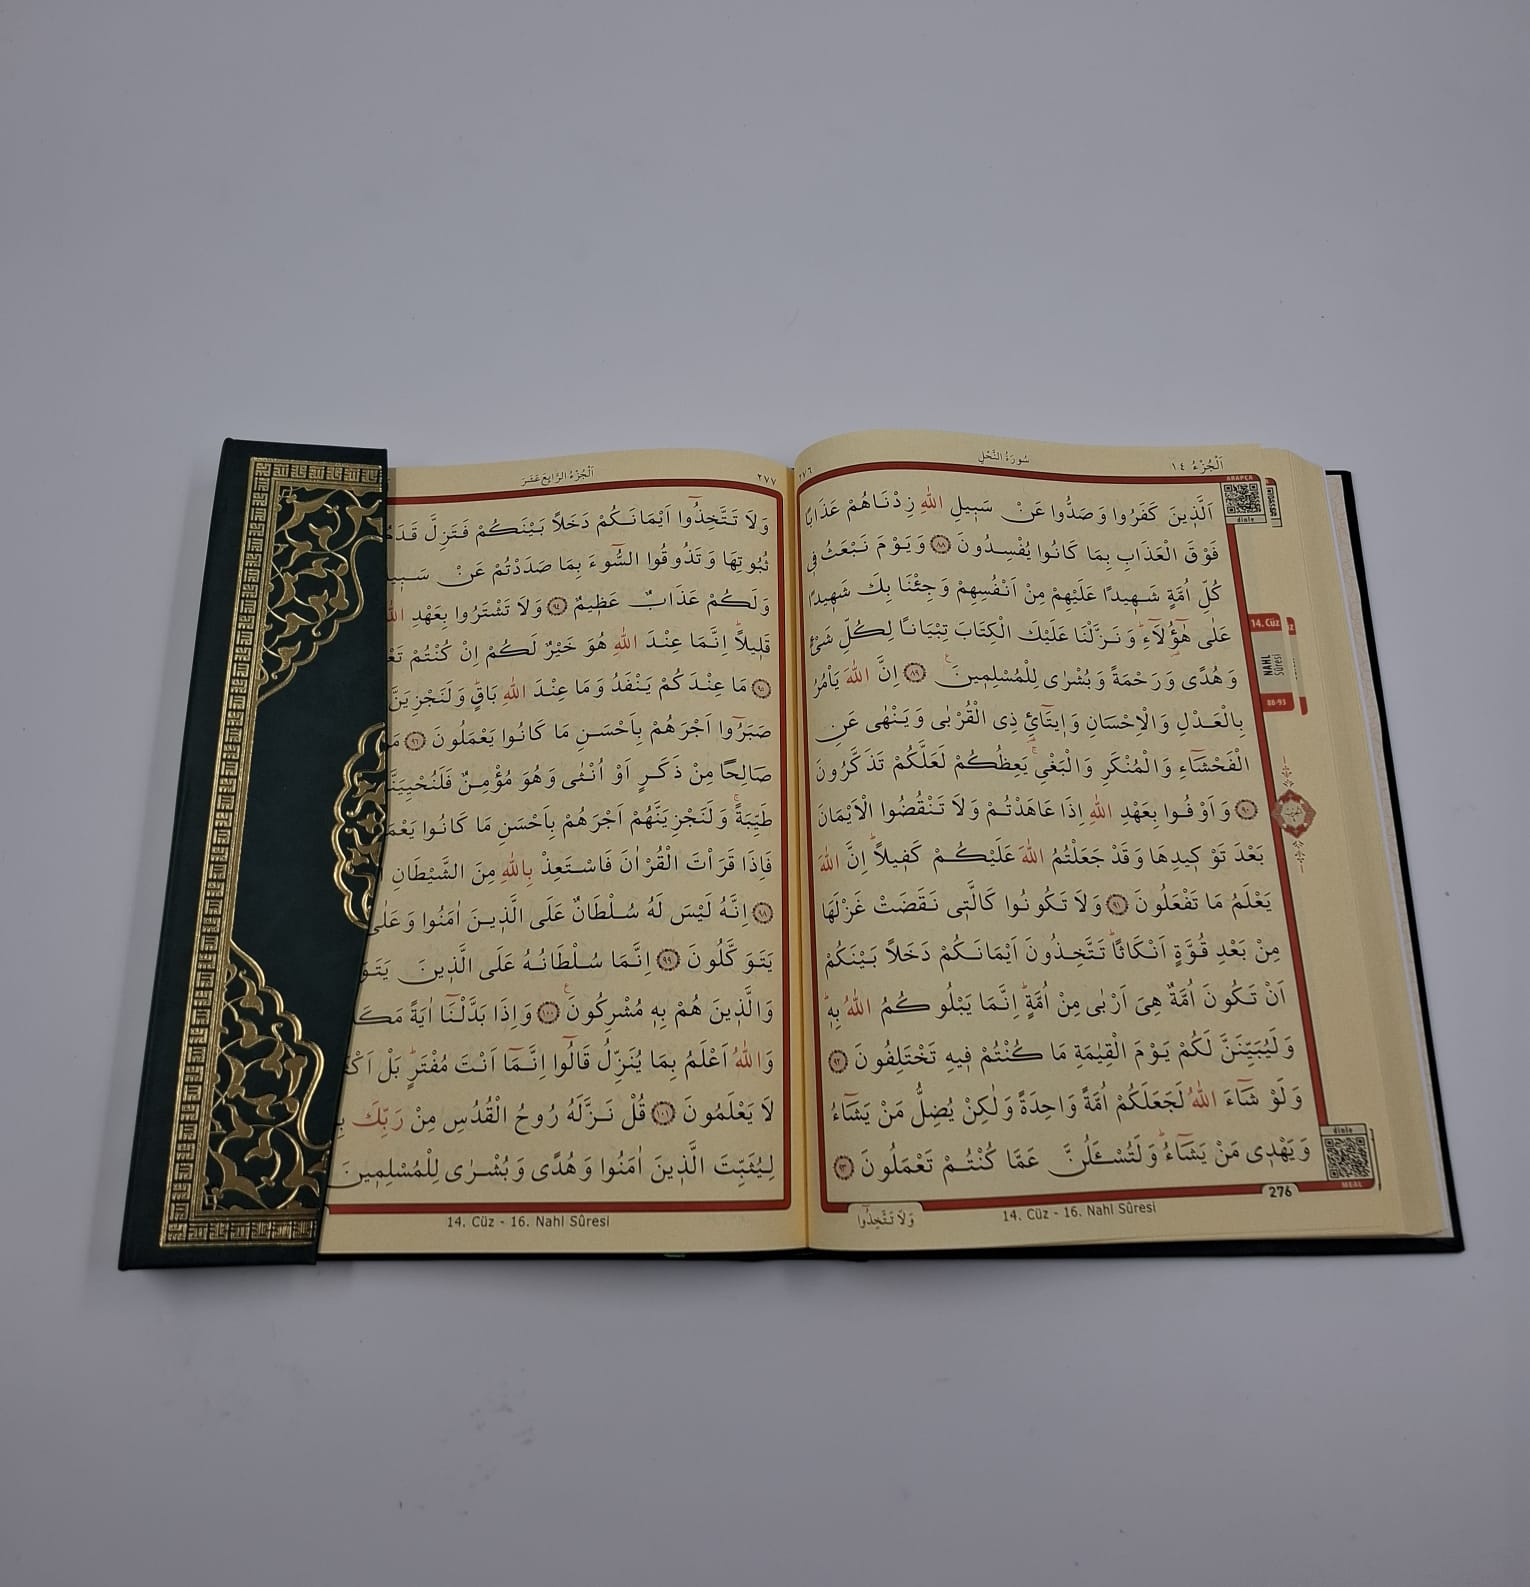 اَلْجُزْءُ ١٤
سُورَةُ النَّحْلِ
٢٧٦
اَلَّذ۪ينَ كَفَرُوا وَصَدُّوا عَنْ سَب۪يلِ اللّٰهِ زِدْنَاهُمْ عَذَابًا
فَوْقَ الْعَذَابِ بِمَا كَانُوا يُفْسِدُونَ ﴿٨٨﴾ وَيَوْمَ نَبْعَثُ ف۪ي
كُلِّ اُمَّةٍ شَه۪يدًا عَلَيْهِمْ مِنْ اَنْفُسِهِمْ وَجِئْنَا بِكَ شَه۪يدًا
عَلٰى هٰٓؤُ۬لَٓاءِۜ وَنَزَّلْنَا عَلَيْكَ الْكِتَابَ تِبْيَانًا لِكُلِّ شَيْءٍ
وَهُدًى وَرَحْمَةً وَبُشْرٰى لِلْمُسْلِم۪ينَ۟ ﴿٨٩﴾ اِنَّ اللّٰهَ يَأْمُرُ
بِالْعَدْلِ وَالْاِحْسَانِ وَا۪يتَٓائِ ذِي الْقُرْبٰى وَيَنْهٰى عَنِ
الْفَحْشَٓاءِ وَالْمُنْكَرِ وَالْبَغْيِۚ يَعِظُكُمْ لَعَلَّكُمْ تَذَكَّرُونَ
﴿٩٠﴾ وَاَوْفُوا بِعَهْدِ اللّٰهِ اِذَا عَاهَدْتُمْ وَلَا تَنْقُضُوا الْاَيْمَانَ
بَعْدَ تَوْك۪يدِهَا وَقَدْ جَعَلْتُمُ اللّٰهَ عَلَيْكُمْ كَف۪يلًاۜ اِنَّ اللّٰهَ
يَعْلَمُ مَا تَفْعَلُونَ ﴿٩١﴾ وَلَا تَكُونُوا كَالَّت۪ي نَقَضَتْ غَزْلَهَا
مِنْ بَعْدِ قُوَّةٍ اَنْكَاثًاۜ تَتَّخِذُونَ اَيْمَانَكُمْ دَخَلًا بَيْنَكُمْ
اَنْ تَكُونَ اُمَّةٌ هِيَ اَرْبٰى مِنْ اُمَّةٍۜ اِنَّمَا يَبْلُوكُمُ اللّٰهُ بِه۪ۜ
وَلَيُبَيِّنَنَّ لَكُمْ يَوْمَ الْقِيٰمَةِ مَا كُنْتُمْ ف۪يهِ تَخْتَلِفُونَ ﴿٩٢﴾
وَلَوْ شَٓاءَ اللّٰهُ لَجَعَلَكُمْ اُمَّةً وَاحِدَةً وَلٰكِنْ يُضِلُّ مَنْ يَشَٓاءُ
وَيَهْد۪ي مَنْ يَشَٓاءُۜ وَلَتُسْـَٔلُنَّ عَمَّا كُنْتُمْ تَعْمَلُونَ ﴿٩٣﴾
وَلَا تَتَّخِذُٓوا
14. Cüz - 16. Nahl Sûresi
276
ARAPÇA
dinle
14. Cüz
NAHL
Sûresi
88-93
dinle
MEAL
٢٧٧
اَلْجُزْءُ الرَّابِعَ عَشَرَ
وَلَا تَتَّخِذُٓوا اَيْمَانَكُمْ دَخَلًا بَيْنَكُمْ فَتَزِلَّ قَدَمٌ
ثُبُوتِهَا وَتَذُوقُوا السُّٓوءَ بِمَا صَدَدْتُمْ عَنْ
وَلَكُمْ عَذَابٌ عَظ۪يمٌ ﴿٩٤﴾ وَلَا تَشْتَرُوا بِعَهْدِ
قَل۪يلًاۜ اِنَّمَا عِنْدَ اللّٰهِ هُوَ خَيْرٌ لَكُمْ اِنْ كُنْتُمْ
﴿٩٥﴾ مَا عِنْدَكُمْ يَنْفَدُ وَمَا عِنْدَ اللّٰهِ بَاقٍۜ وَلَنَجْزِيَنَّ
صَبَرُٓوا اَجْرَهُمْ بِاَحْسَنِ مَا كَانُوا يَعْمَلُونَ ﴿٩٦﴾
صَالِحًا مِنْ ذَكَرٍ اَوْ اُنْثٰى وَهُوَ مُؤْمِنٌ فَلَنُحْيِيَنَّهُ
طَيِّبَةًۚ وَلَنَجْزِيَنَّهُمْ اَجْرَهُمْ بِاَحْسَنِ مَا كَانُوا
فَاِذَا قَرَأْتَ الْقُرْاٰنَ فَاسْتَعِذْ بِاللّٰهِ مِنَ الشَّيْطَانِ
﴿٩٨﴾ اِنَّهُ لَيْسَ لَهُ سُلْطَانٌ عَلَى الَّذ۪ينَ اٰمَنُوا وَعَلٰى
يَتَوَكَّلُونَ ﴿٩٩﴾ اِنَّمَا سُلْطَانُهُ عَلَى الَّذ۪ينَ
وَالَّذ۪ينَ هُمْ بِه۪ مُشْرِكُونَ۟ ﴿١٠٠﴾ وَاِذَا بَدَّلْنَٓا اٰيَةً
وَاللّٰهُ اَعْلَمُ بِمَا يُنَزِّلُ قَالُٓوا اِنَّمَٓا اَنْتَ مُفْتَرٍۜ بَلْ
لَا يَعْلَمُونَ ﴿١٠١﴾ قُلْ نَزَّلَهُ رُوحُ الْقُدُسِ مِنْ رَبِّكَ
لِيُثَبِّتَ الَّذ۪ينَ اٰمَنُوا وَهُدًى وَبُشْرٰى لِلْمُسْلِم۪ينَ
14. Cüz - 16. Nahl Sûresi